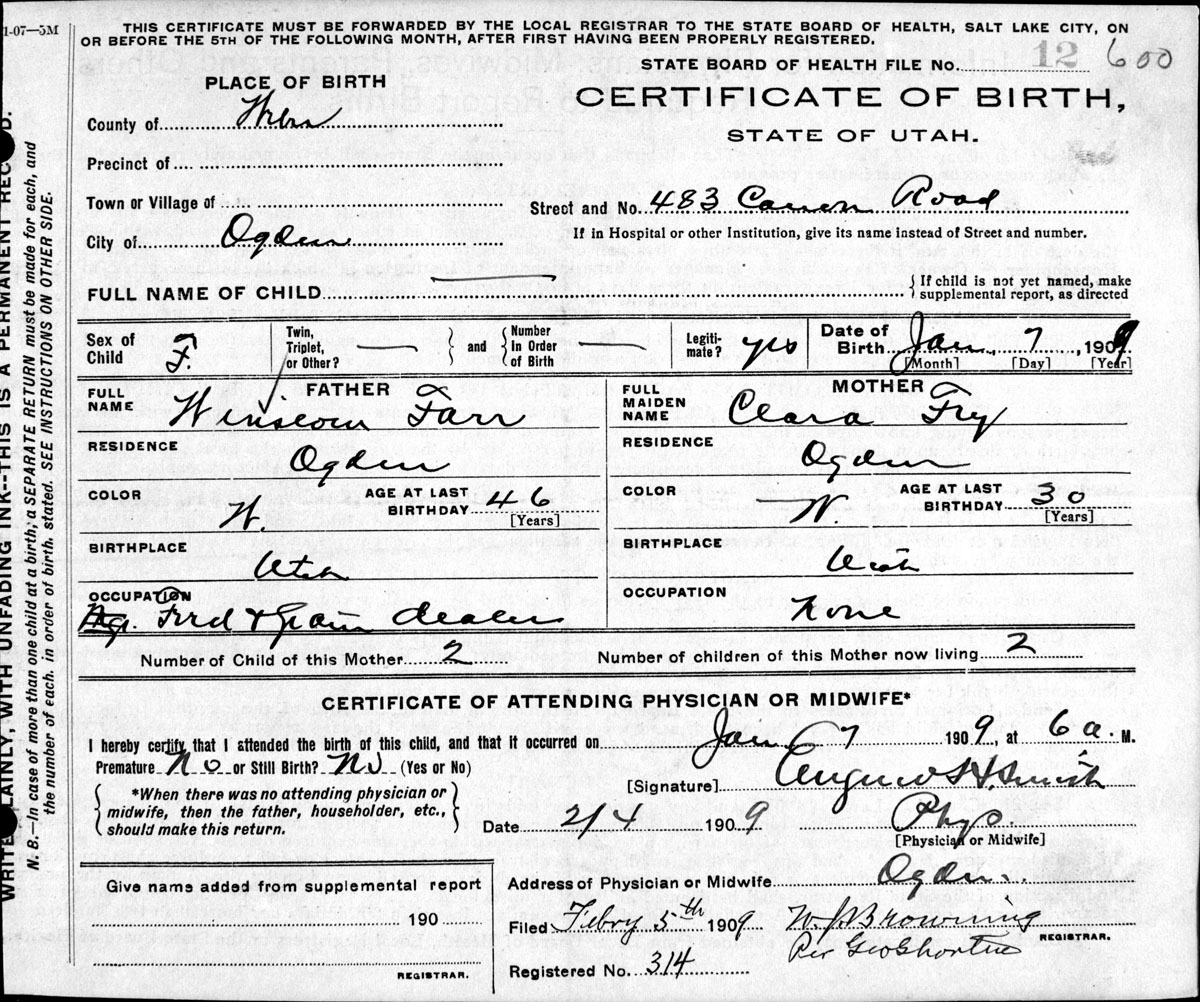 1-07—5M
THIS CERTIFICATE MUST BE FORWARDED BY THE LOCAL REGISTRAR TO THE STATE BOARD OF HEALTH, SALT LAKE CITY, ON
OR BEFORE THE 5TH OF THE FOLLOWING MONTH, AFTER FIRST HAVING BEEN PROPERLY REGISTERED.
STATE BOARD OF HEALTH FILE No. 12 600
PLACE OF BIRTH
CERTIFICATE OF BIRTH,
STATE OF UTAH.
County of Weber
Precinct of
Town or Village of
Street and No. 483 Canon Road
City of Ogden
If in Hospital or other Institution, give its name instead of Street and number.
FULL NAME OF CHILD
If child is not yet named, make
supplemental report, as directed
Sex of Child F.
Twin, Triplet, or Other? —
and
Number In Order of Birth —
Legiti-mate? yes
Date of Birth Jan. 7, 1909
[Month] [Day] [Year]
FATHER
FULL NAME Winslow Farr
MOTHER
FULL MAIDEN NAME Clara Fry
RESIDENCE Ogden
RESIDENCE Ogden
COLOR W.
AGE AT LAST BIRTHDAY 46
[Years]
COLOR W.
AGE AT LAST BIRTHDAY 30
[Years]
BIRTHPLACE Utah
BIRTHPLACE Utah
OCCUPATION
Feed & Grain dealer
OCCUPATION None
Number of Child of this Mother 2
Number of children of this Mother now living 2
CERTIFICATE OF ATTENDING PHYSICIAN OR MIDWIFE*
I hereby certify that I attended the birth of this child, and that it occurred on Jan 7 1909, at 6 a. M.
Premature No or Still Birth? No (Yes or No)
[Signature] H. Smith
*When there was no attending physician or
midwife, then the father, householder, etc.,
should make this return.
Date 2/4 1909
Phys.
[Physician or Midwife]
Give name added from supplemental report
190
REGISTRAR.
Address of Physician or Midwife Ogden.
Filed Febry 5th 1909 W. J. Browning
REGISTRAR.
Per Geo Shorten
Registered No. 314
WRITE PLAINLY, WITH UNFADING INK--THIS IS A PERMANENT RECORD.
N. B.—In case of more than one child at a birth, a SEPARATE RETURN must be made for each, and
the number of each, in order of birth, stated. SEE INSTRUCTIONS ON OTHER SIDE.